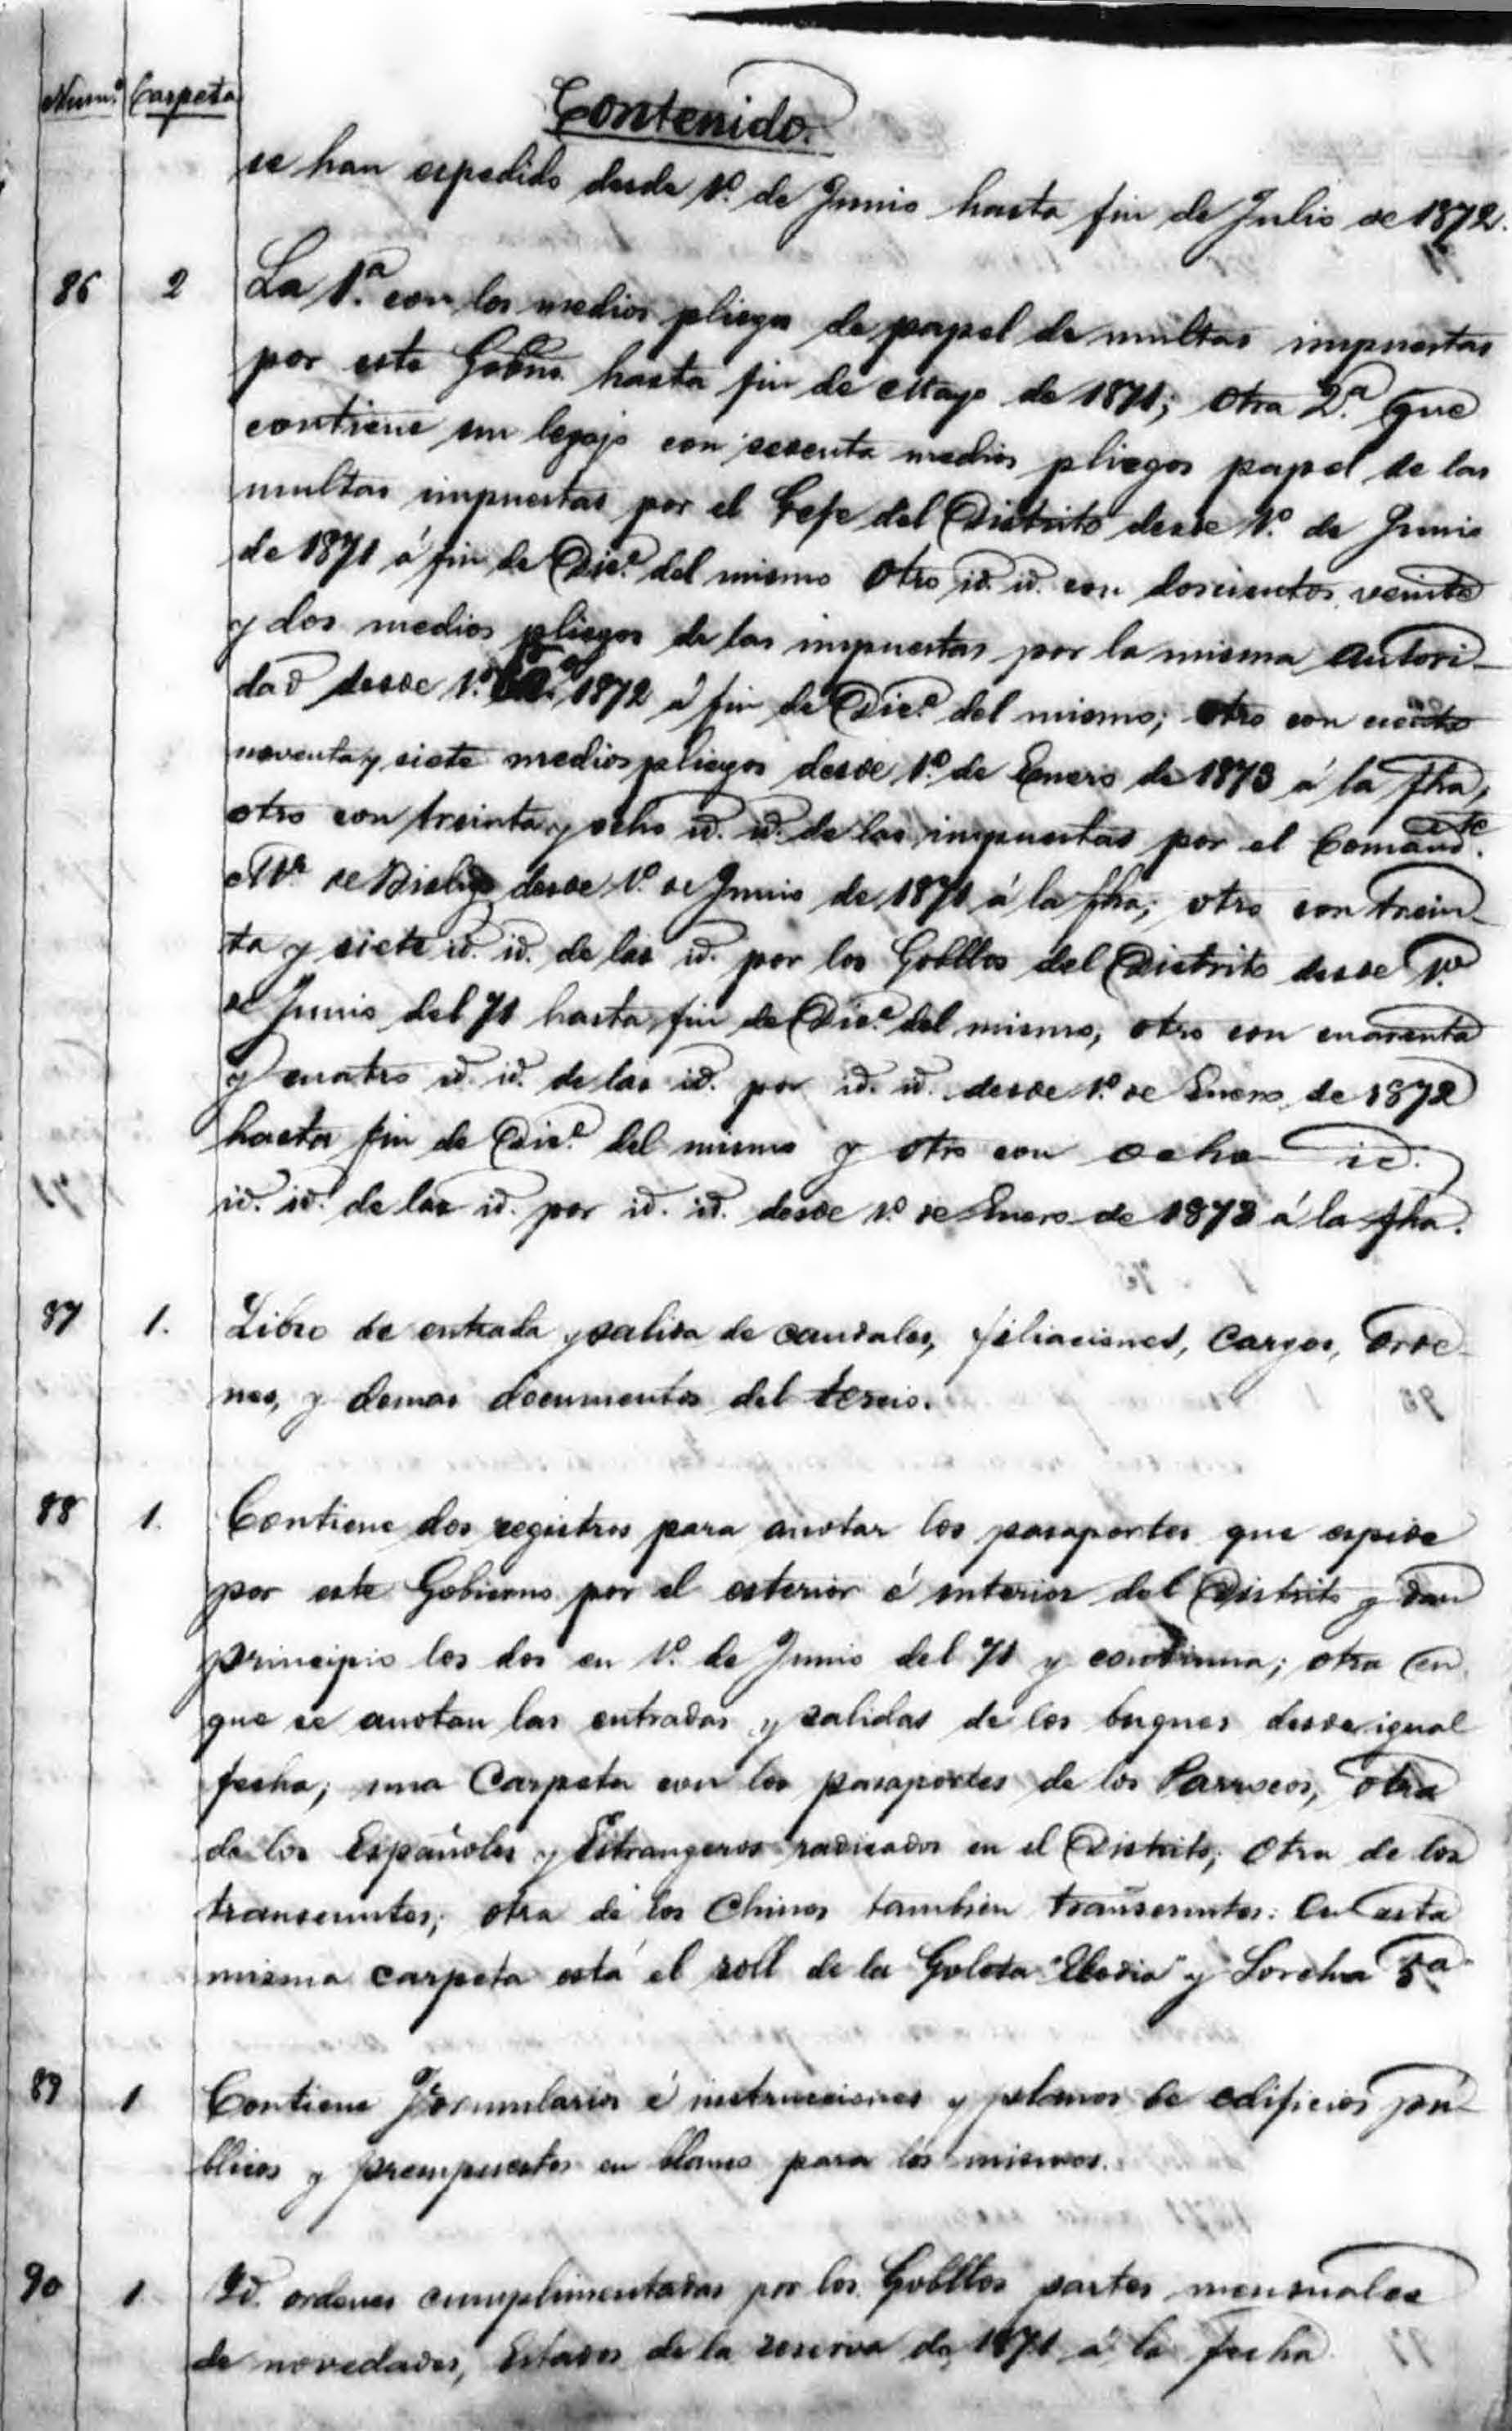 Num.º Carpeta Contenido.
se han espedido desde 1.º de Junio hasta fin de Julio de 1872.
86 2 La 1.ª con los medios pliegos de papel de multas impuestas
por este Gobno. hasta fin de Mayo de 1871; otra 2.ª que
contiene un legajo con sesenta medios pliegos papel de las
multas impuestas por el Gefe del Distrito desde 1.º de Junio
de 1871 á fin de Dic.e del mismo Otro id. id. con doscientos veinte
y dos medios pliegos de las impuestas por la misma Autori-
dad desde 1.º 1872 á fin de Dic.e del mismo; otro con ciento
noventa y siete medios pliegos desde 1.º de Enero de 1873 á la fha,
otro con treinta y ocho id. id. de las impuestas por el Comand.te
M.r de Bislig desde 1.º de Junio de 1871 á la fha; otro con trein-
ta y siete id. id. de las id. por los Gobllos del Distrito desde 1.º
de Junio del 71 hasta fin de Dic.e del mismo, otro con cuarenta
y cuatro id. id. de las id. por id. id. desde 1.º de Enero de 1872
hasta fin de Dic.e del mismo y otro con ocho id.
id. id. de las id. por id. id. desde 1.º de Enero de 1873 á la fha.
87 1. Libro de entrada y salida de caudales, filiaciones, cargos, orde-
nes, y demas documentos del tercio.
88 1. Contiene dos registros para anotar los pasaportes que espide
por este Gobierno por el esterior é interior del Distrito y dan
principio los dos en 1.º de Junio del 71 y continua; otra en
que se anotan las entradas y salidas de los buques desde igual
fecha; una Carpeta con los pasaportes de los Parrocos, otra
de los Españoles y Estrangeros radicados en el Distrito; Otra de los
transeuntes; otra de los Chinos tambien transeuntes: En esta
misma carpeta está el roll de la Goleta "Elodia" y Lorcha 5.a
89 1 Contiene Formularios é instrucciones y planos de edificios pú-
blicos y presupuestos en blanco para los mismos.
90 1 Id. ordenes cumplimentadas por los Gobllos partes mensuales
de novedades, Estados de la reserva de 1871 á la fecha